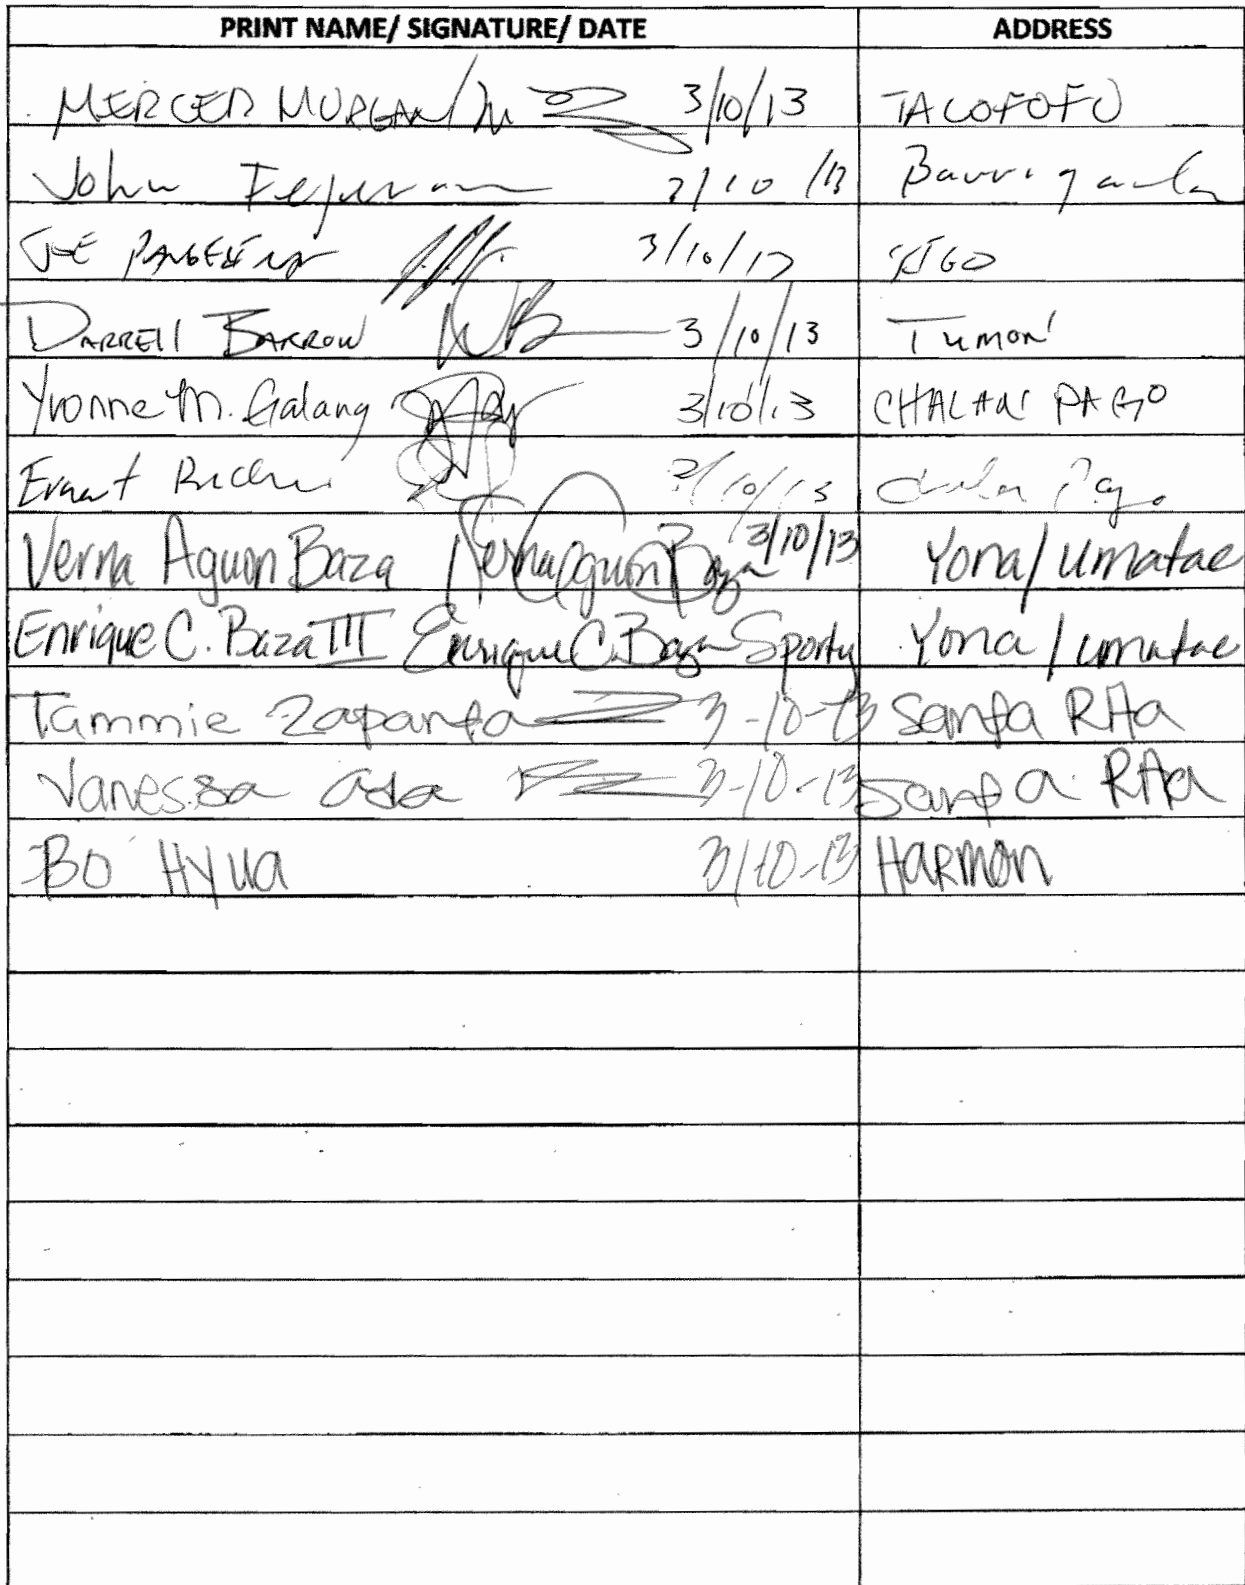 PRINT NAME/ SIGNATURE/ DATE ADDRESS
MERCED MORGAN 3/10/13 TALOFOFO
John 3/10/13 Barrigada
JOE PANGELINAN 3/10/13 YIGO
DARRELL BARROW 3/10/13 TUMON
Yvonne M. Galang 3/10/13 CHALAN PAGO
3/10/13
Verna Aguon Baza Verna Aguon Baza 3/10/13 Yona/Umatac
Enrique C. Baza III Enrique C. Baza Sporty Yona/Umatac
Tammie Zapanta 3-10-13 Santa Rita
Vanessa Ada 3-10-13 Santa Rita
BO HYUA 3/10-13 HARMON